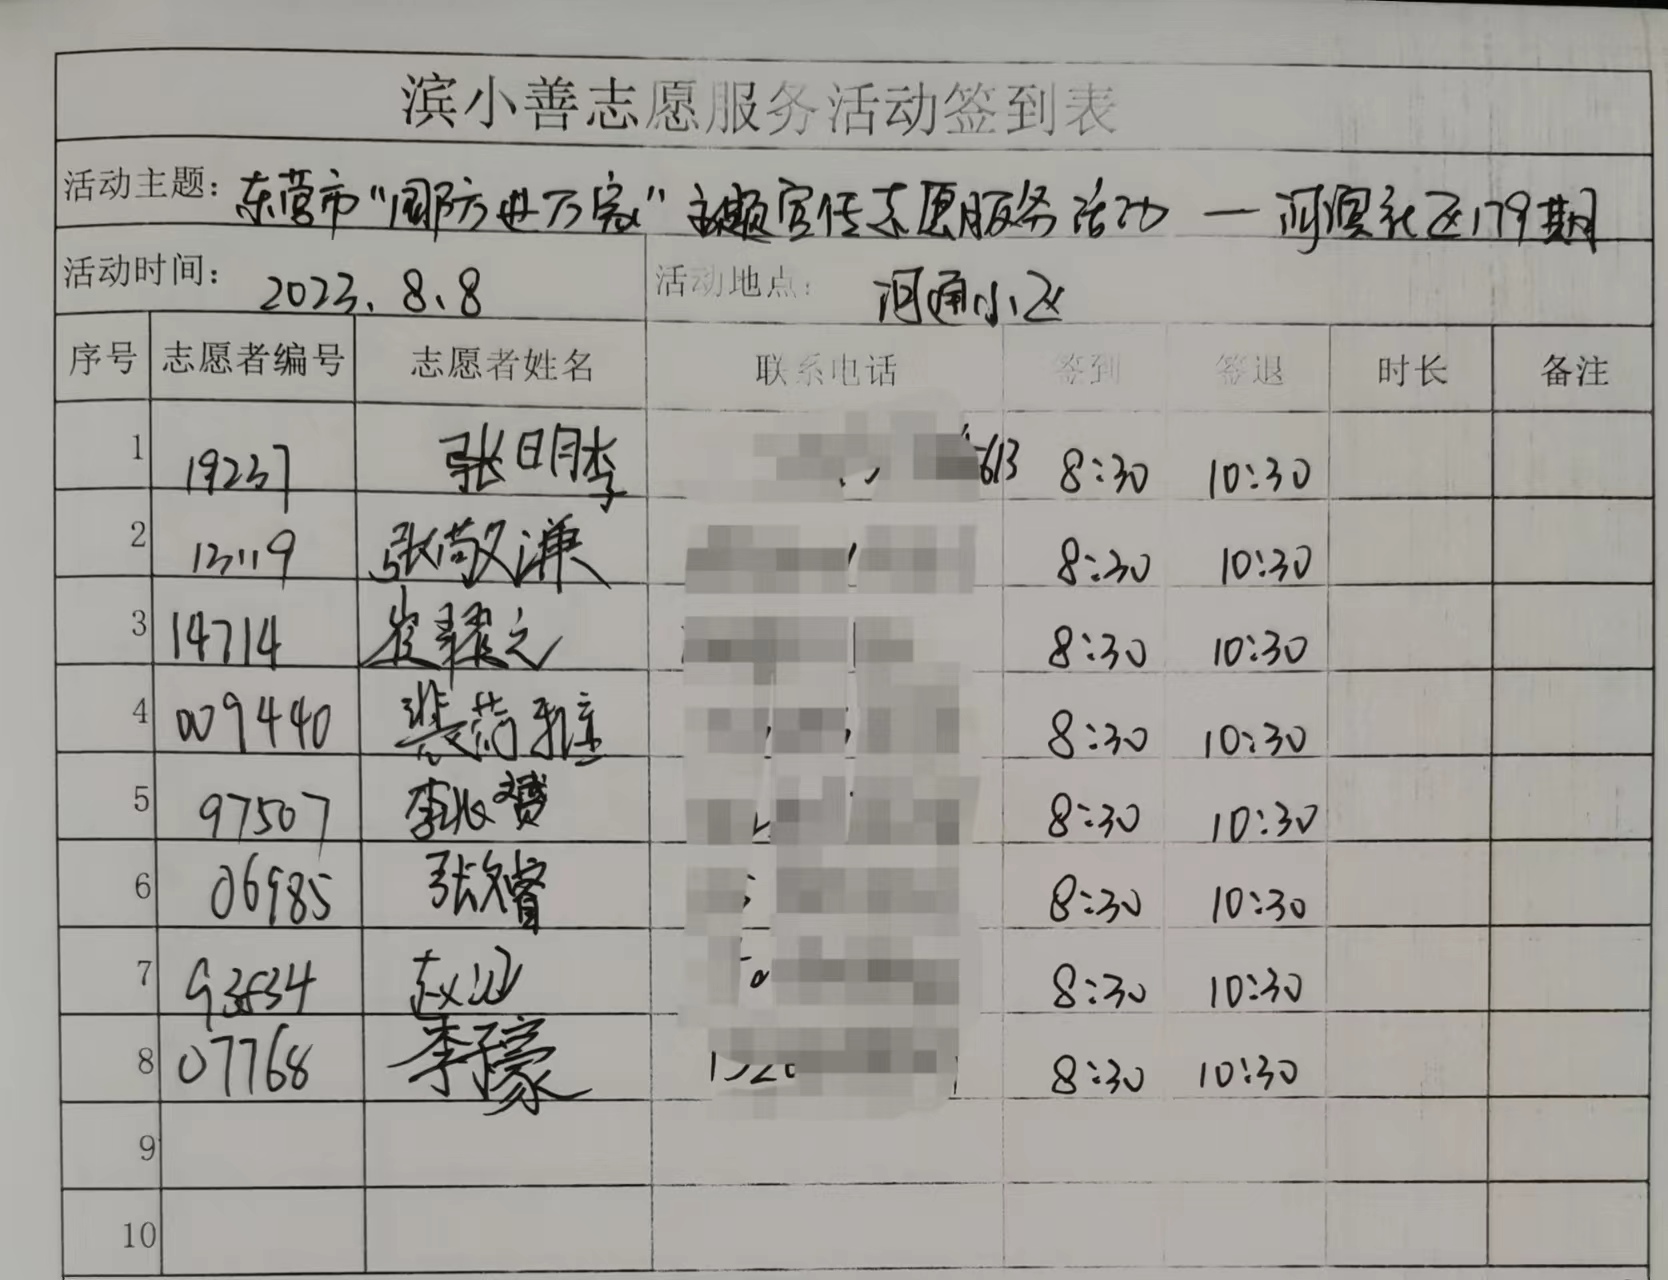 滨小善志愿服务活动签到表
活动主题: 东营市“国防进万家”主题宣传志愿服务活动 — 河滨社区179期
活动时间: 2023.8.8 活动地点: 河通小区
序号 志愿者编号 志愿者姓名 联系电话 签到 签退 时长 备注
1 19237 张明李 613 8:30 10:30
2 13119 张敬谦 8:30 10:30
3 14714 崔耀之 8:30 10:30
4 009440 裴菂雅 8:30 10:30
5 97507 李兆赟 8:30 10:30
6 06985 张睿 8:30 10:30
7 93534 赵 8:30 10:30
8 07768 李豪 8:30 10:30
9
10